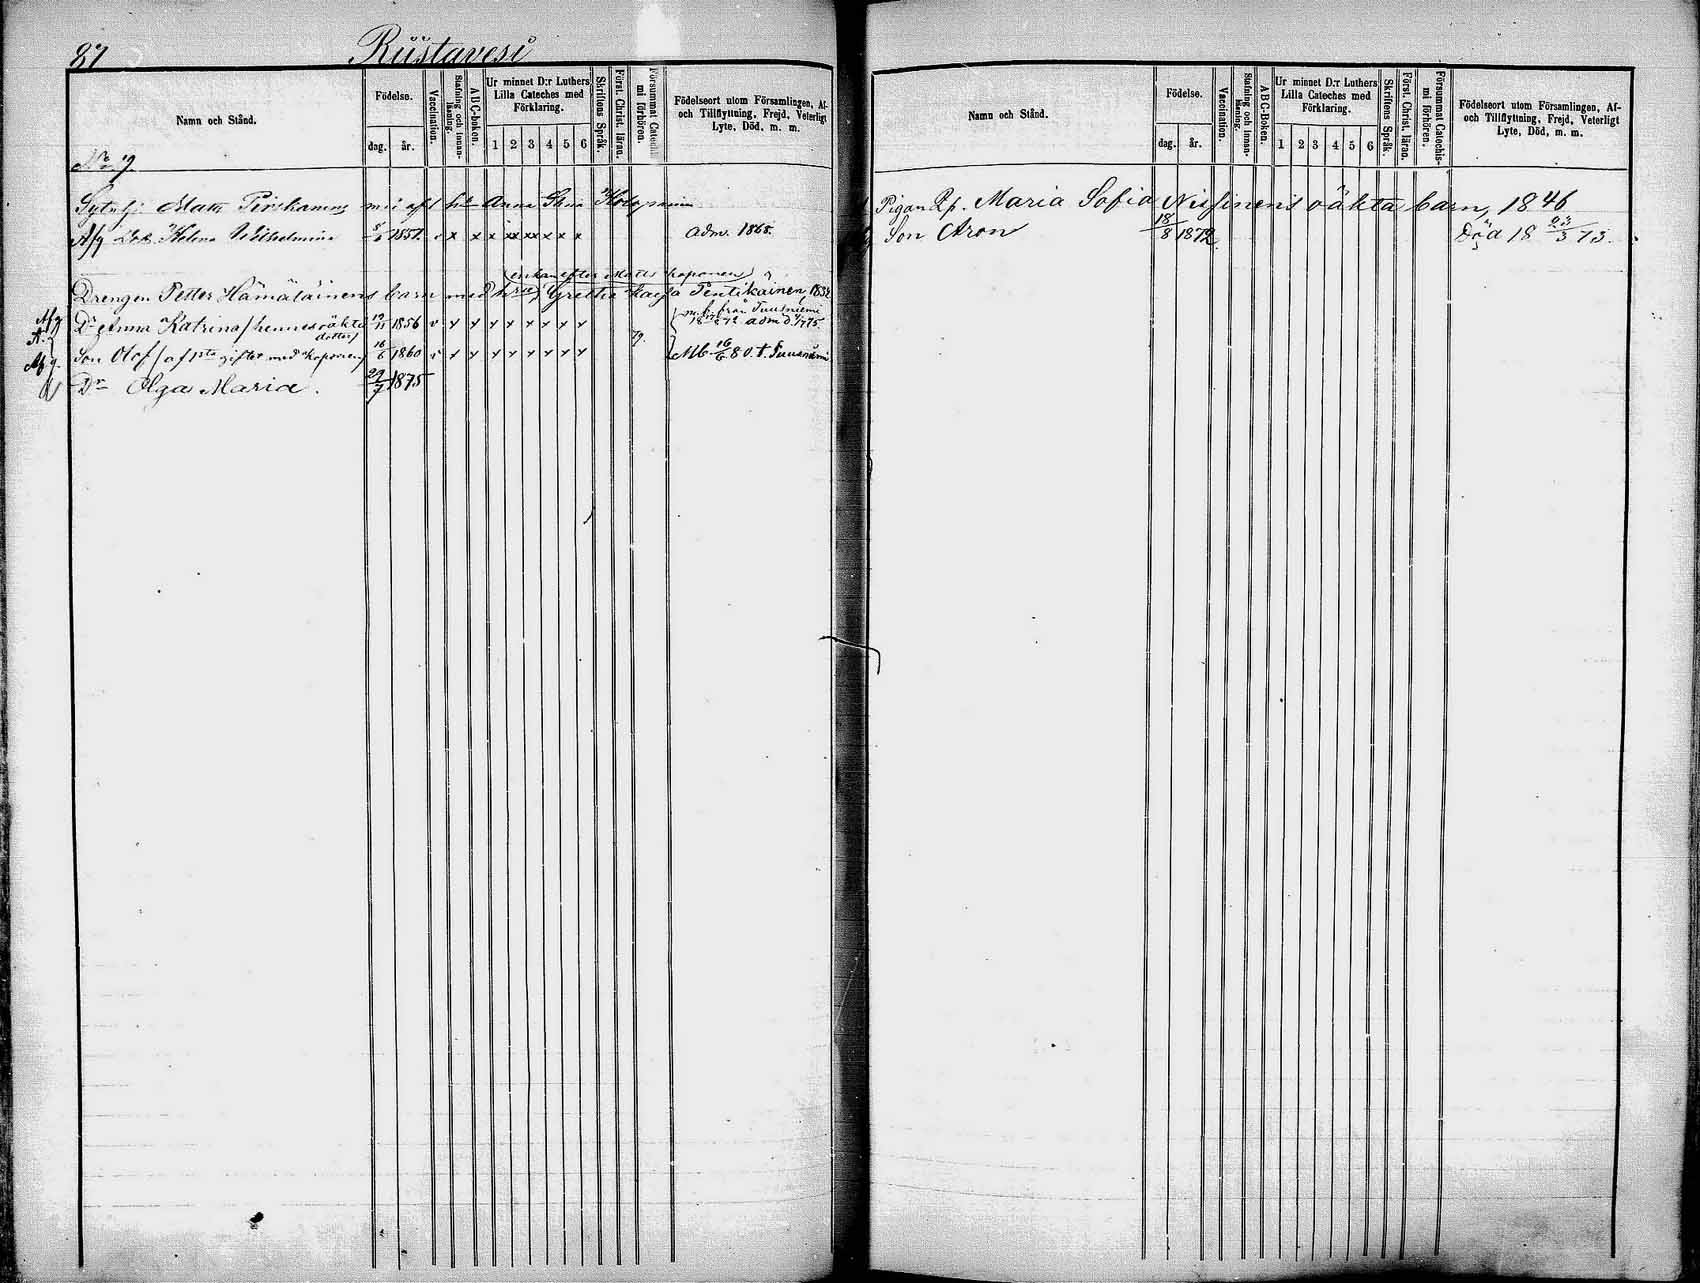 87 Riistavesi
Namn och Stånd.
Födelse.
dag. år.
Vaccination.
Stafning och innan-läsning.
ABC-boken.
Ur minnet D:r Luthers Lilla Cateches med Förklaring.
1 2 3 4 5 6
Skriftens Språk.
Först. Christ. läran.
Försummat Catechismi förhören.
Födelseort utom Församlingen, Af- och Tillflyttning, Frejd, Veterligt Lyte, Död, m. m.
No 7.
Matts Pirskanens med Anna
Afg Helena Wilhelmina 1851 v x x x xx xx x x x adm. 1865
(enkan efter Matts Koponen)
Drengen Petter Hämäläinens barn med Gretha Kajsa Pentikäinen, 1832
Afg Dr Anna Katrina / hennes oäkta dotter / 1856 v x x x x x x x x från Tuusniemi adm
Afg. Son Olof / af 1sta giftet med Koponen / 16/6 1860 v x x x x x x x x 79. Mb 16/6 80 t. Tuusniemi
Dr Olga Maria. 29/7 1875
Namn och Stånd.
Födelse.
dag. år.
Vaccination.
Stafning och innan-läsning.
ABC-Boken.
Ur minnet D:r Luthers Lilla Cateches med Förklaring.
1 2 3 4 5 6
Skriftens Språk.
Först. Christ. läran.
Försummat Catechis-mi förhören.
Födelseort utom Församlingen, Af- och Tillflyttning, Frejd, Veterligt Lyte, Död, m. m.
Pigan Maria Sofia Nissinens oäkta barn, 1846
Son Aron 18/8 1872 Död 18 23/3 73.